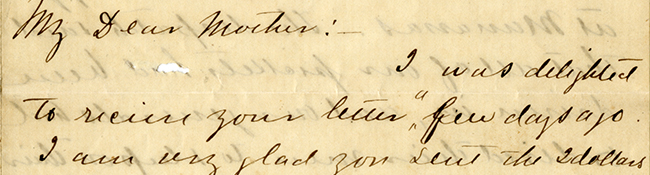 My Dear Mother:—
I was delighted
to recieve your letter a few days ago.
I am very glad you sent the 2 dollars